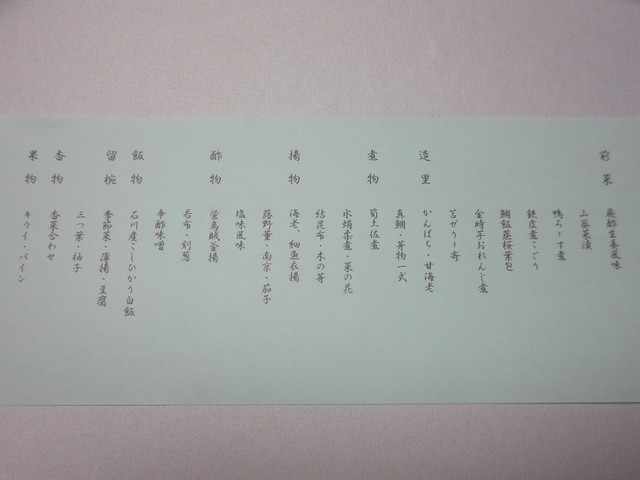 前菜
酢生姜風味
山葵菜漬
鴨ろーす煮
鉄皮煮こごり
鯛飯蒸桜葉包
金時芋おれんじ煮
苔ゼリー寄
造里
かんぱち・甘海老
真鯛・芽物一式
煮物
筍土佐煮
水蛸柔煮・菜の花
結昆布・木の芽
揚物
海老、細魚衣揚
蕗野薹・南京・茄子
塩味風味
酢物
蛍烏賊釜揚
若布・刻葱
辛酢味噌
飯物
石川産こしひかり白飯
留椀
季節菜・薄揚・豆腐
三つ葉・柚子
香物
香菜合わせ
果物
キウイ・パイン